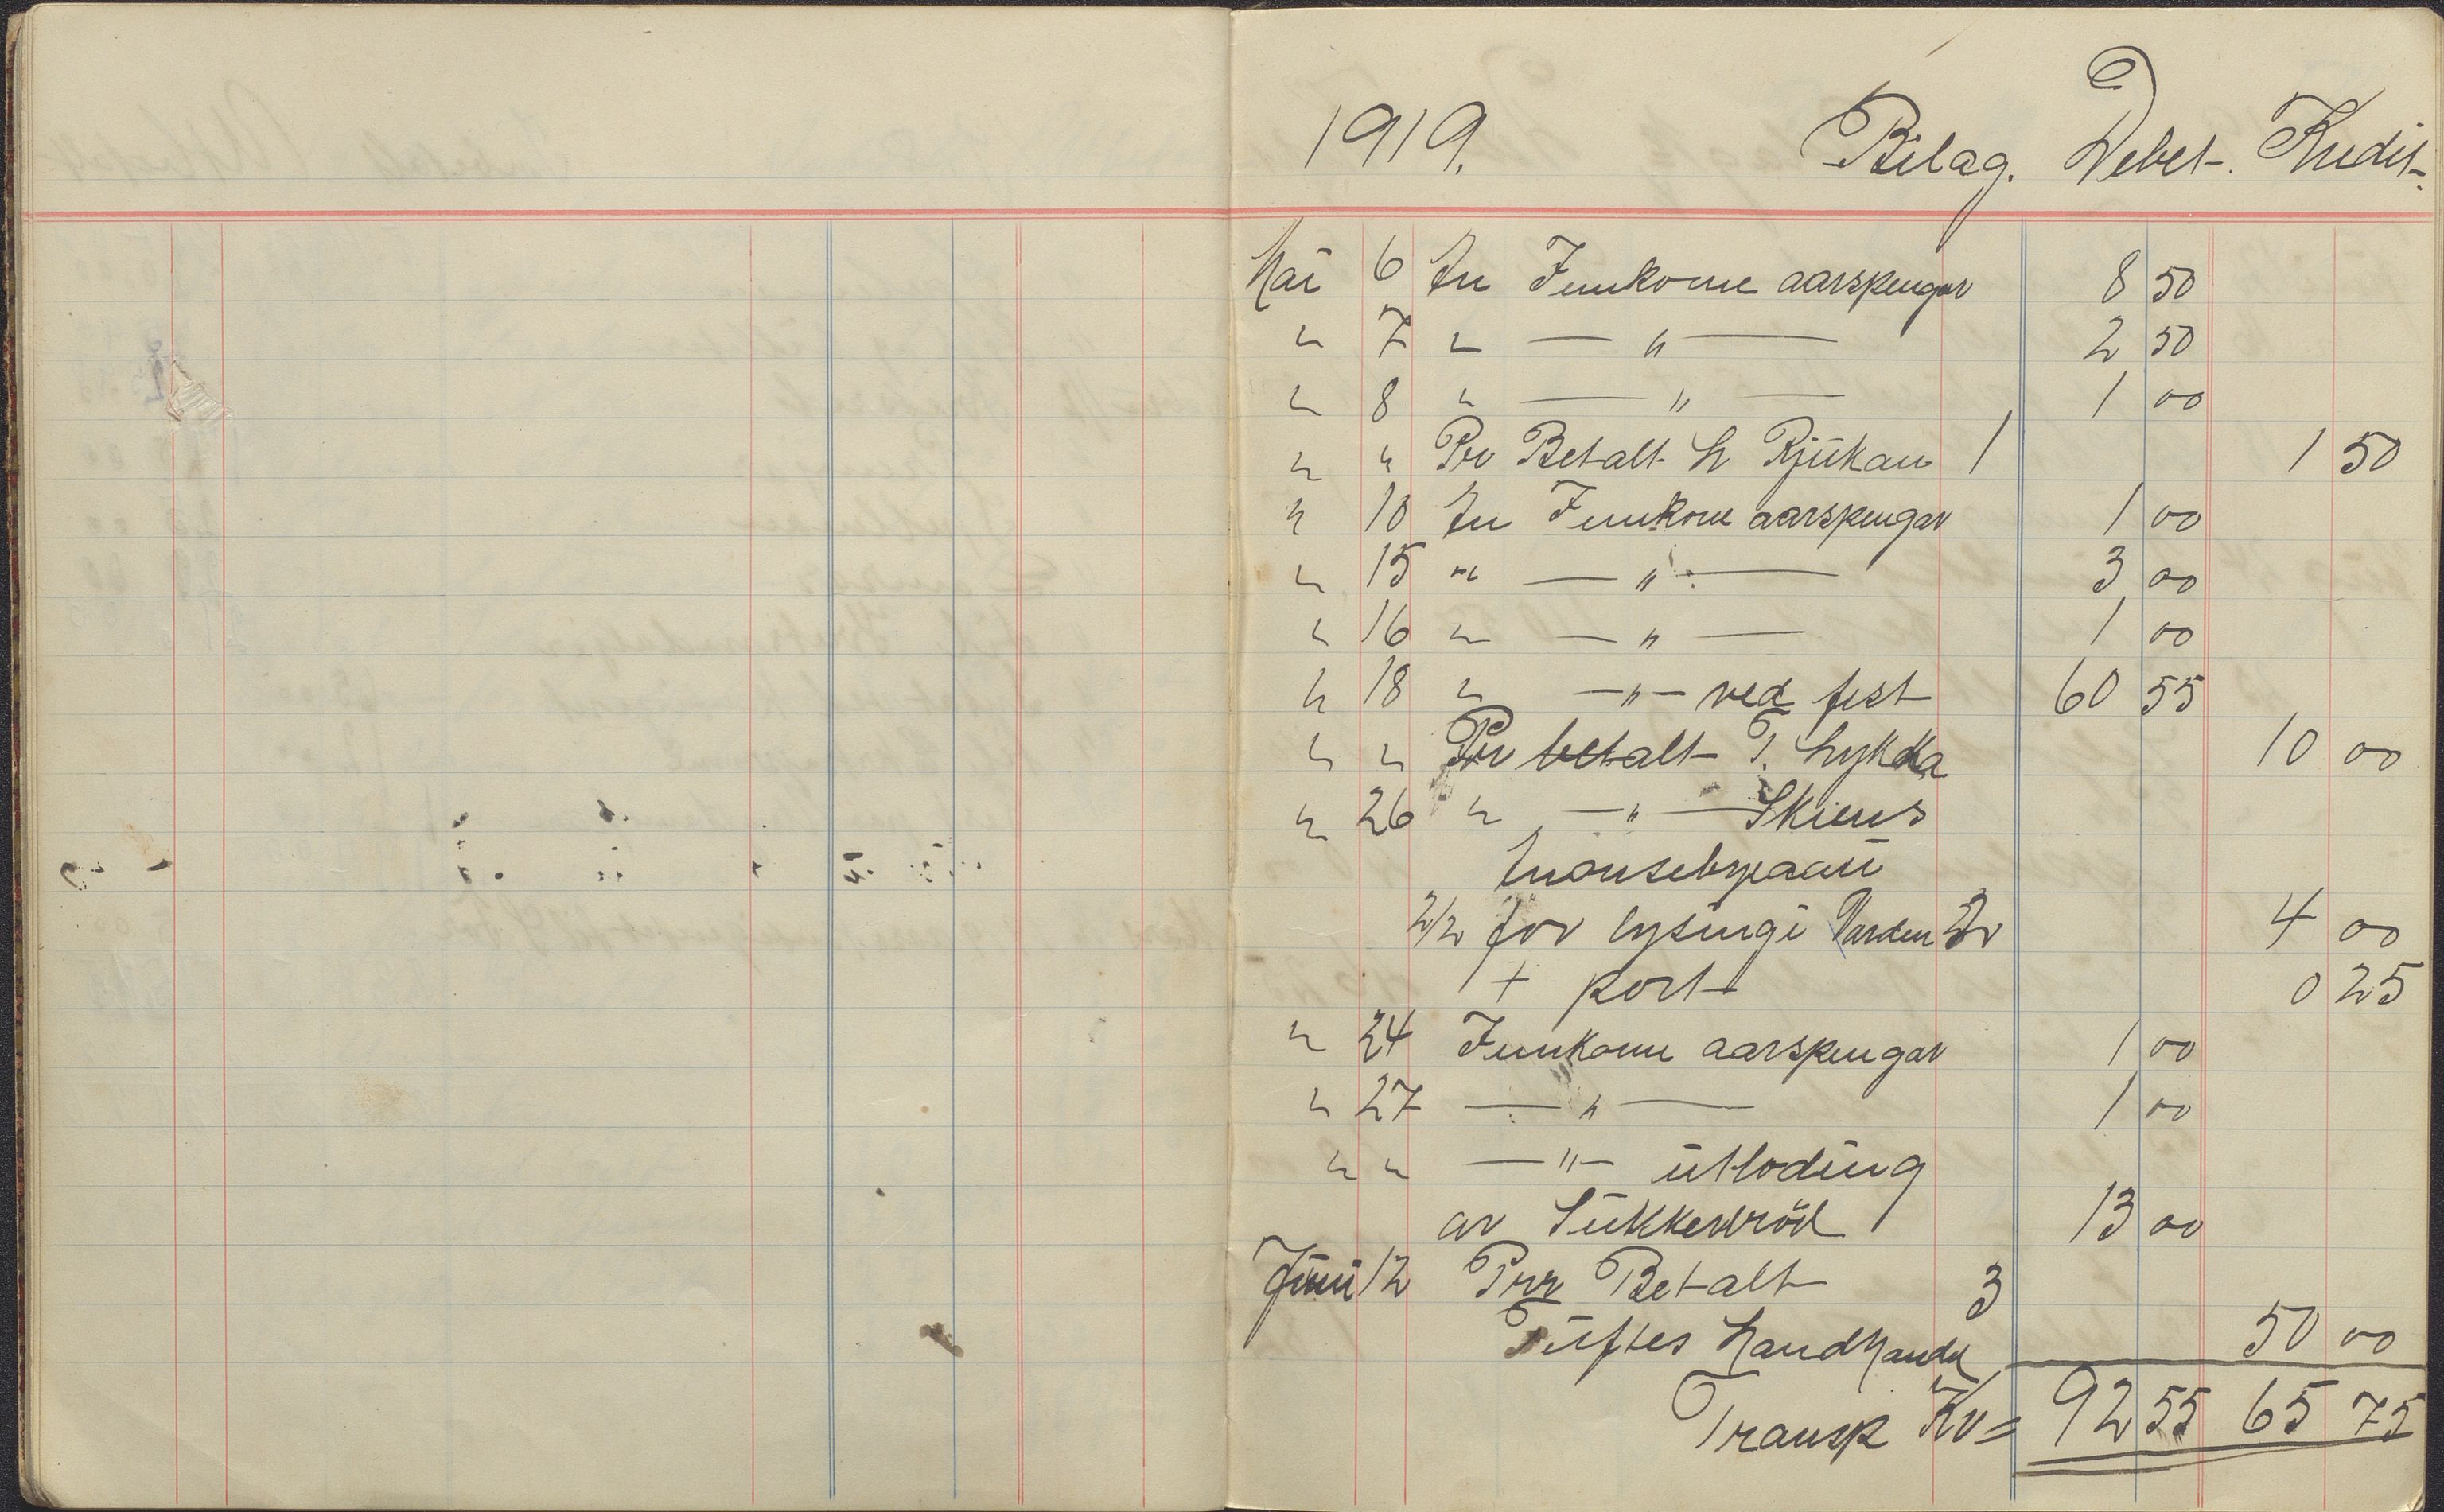 1919. Bilag. Debet. Kredit.
Mai 6 An Innkome aarspengar 8 50
" 7 " — " — 2 50
" 8 " — " — 1 00
" " Pr Betalt h Rjukan 1 1 50
" 10 An Innkome aarspengar 1 00
" 15 " — " — 3 00
" 16 " — " — 1 00
" 18 " — " — ved fest 60 55
" " Pr betalt T. Lykkja 10 00
" 26 " — " — Skiens
2/2 for lysing i Varden 2 4 00
+ port 0 25
" 24 Innkome aarspengar 1 00
" 27 — " — 1 00
" " — " — utloding
av Sukkerbröd 13 00
Juni 12 Pr Betalt 3
Tuftes Landhandel 50 00
Transp Kr= 92 55 65 75